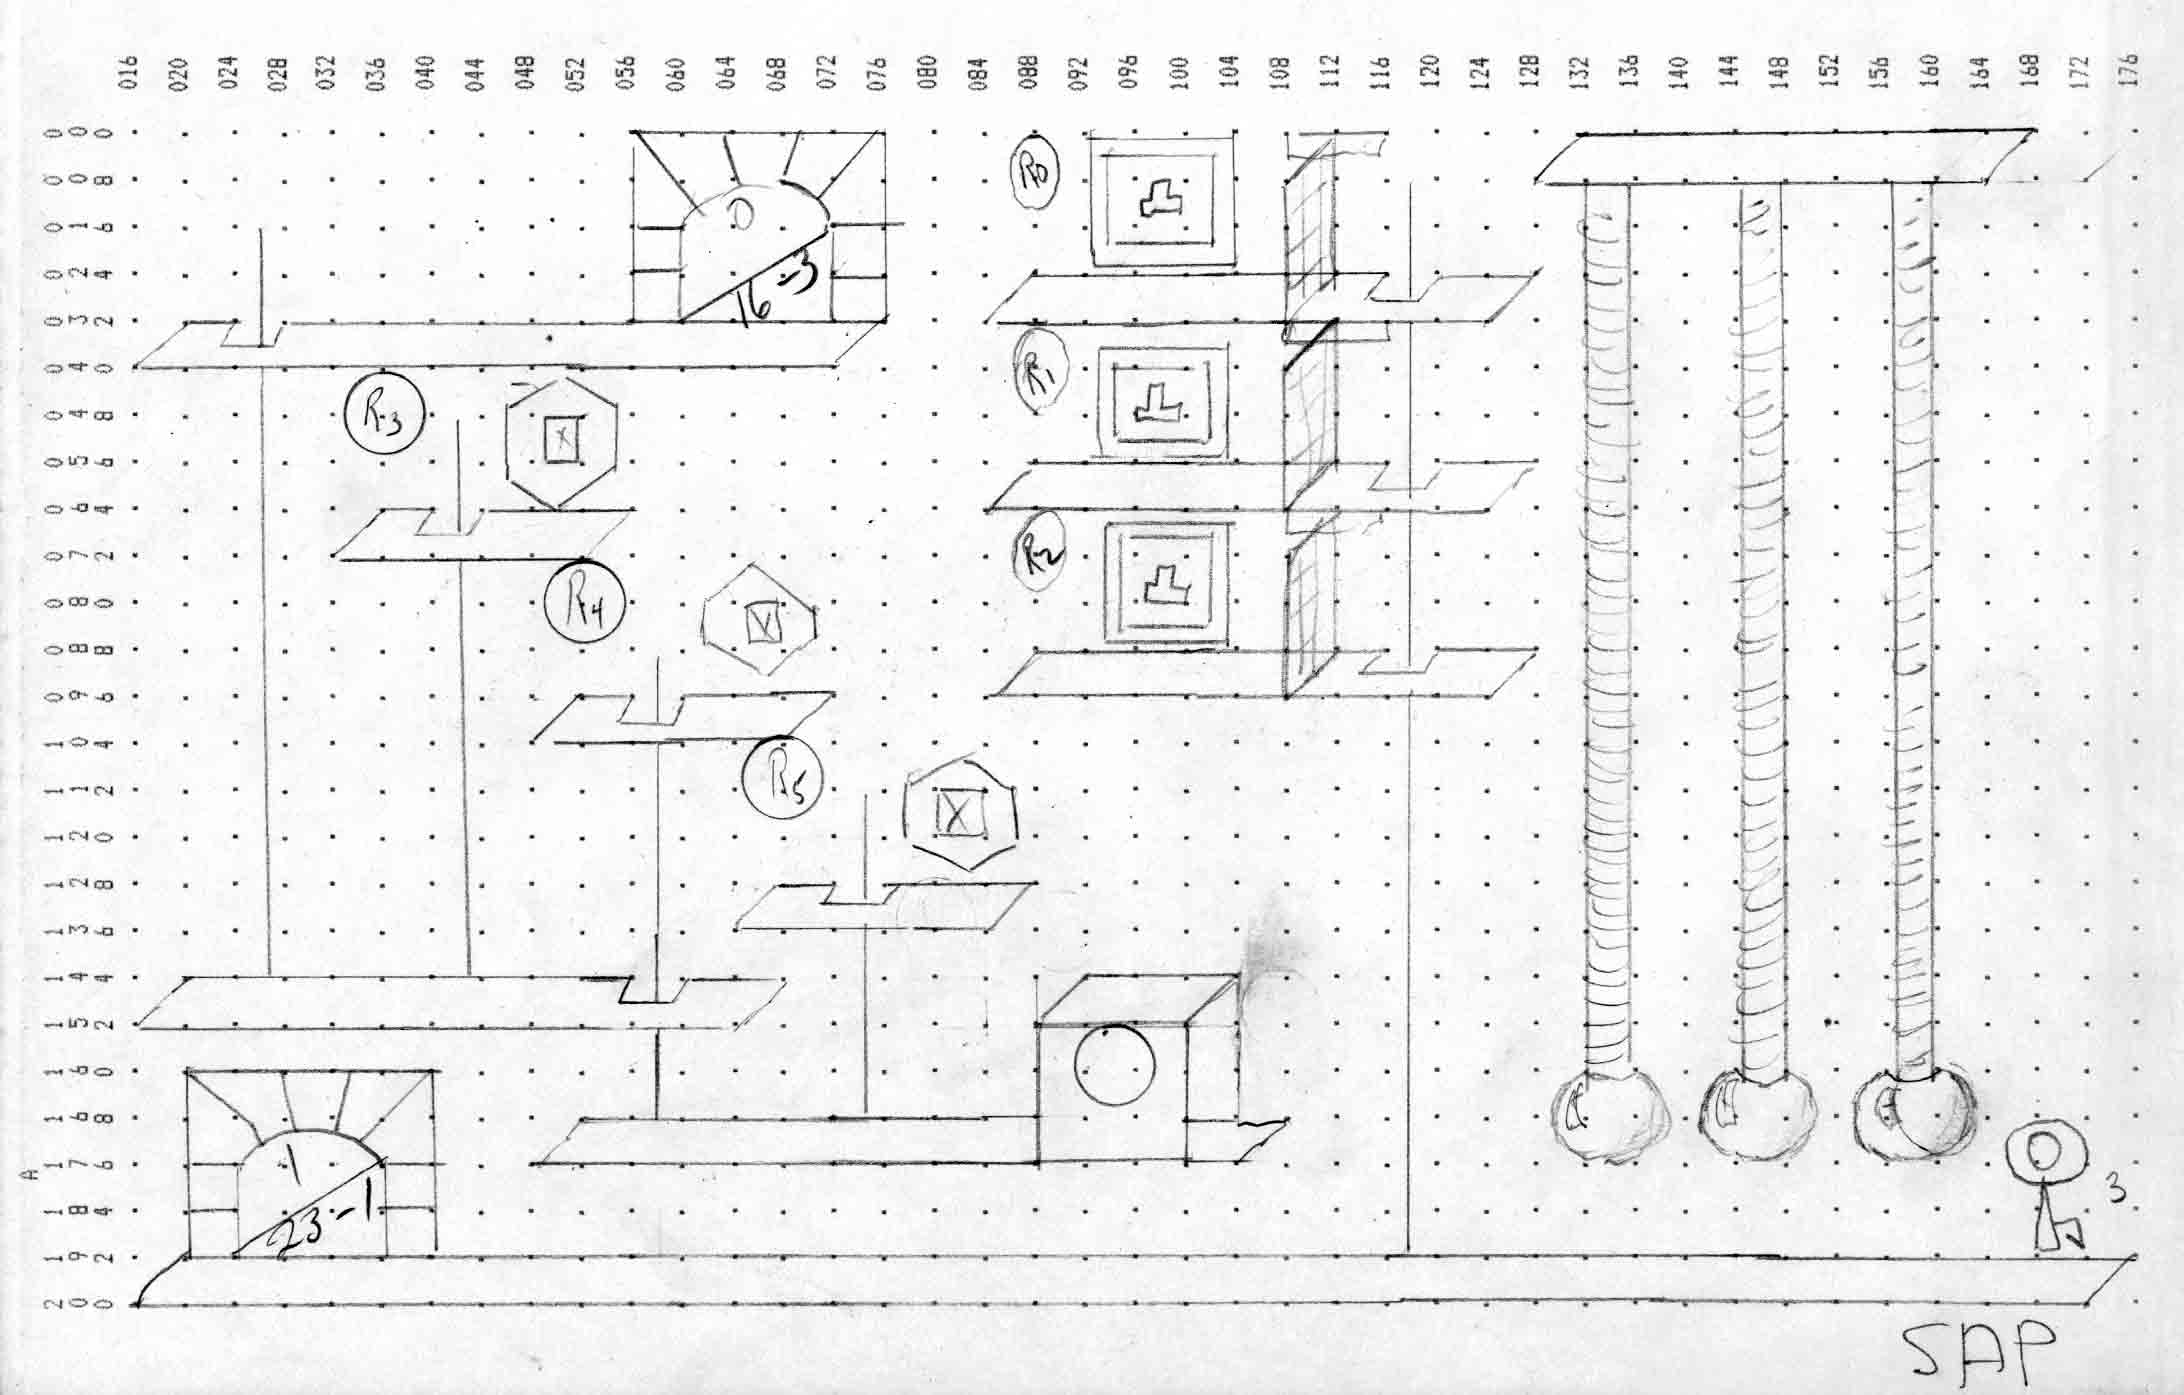 016 020 024 028 032 036 040 044 048 052 056 060 064 068 072 076 080 084 088 092 096 100 104 108 112 116 120 124 128 132 136 140 144 148 152 156 160 164 168 172 176
000
008
016
024
032
040
048
056
064
072
080
088
096
104
112
120
128
136
144
152
160
168
176
184
192
200
A
0
16-3
R0
R1
R2
R3
X
R4
X
R5
X
1
23-1
3
SAP